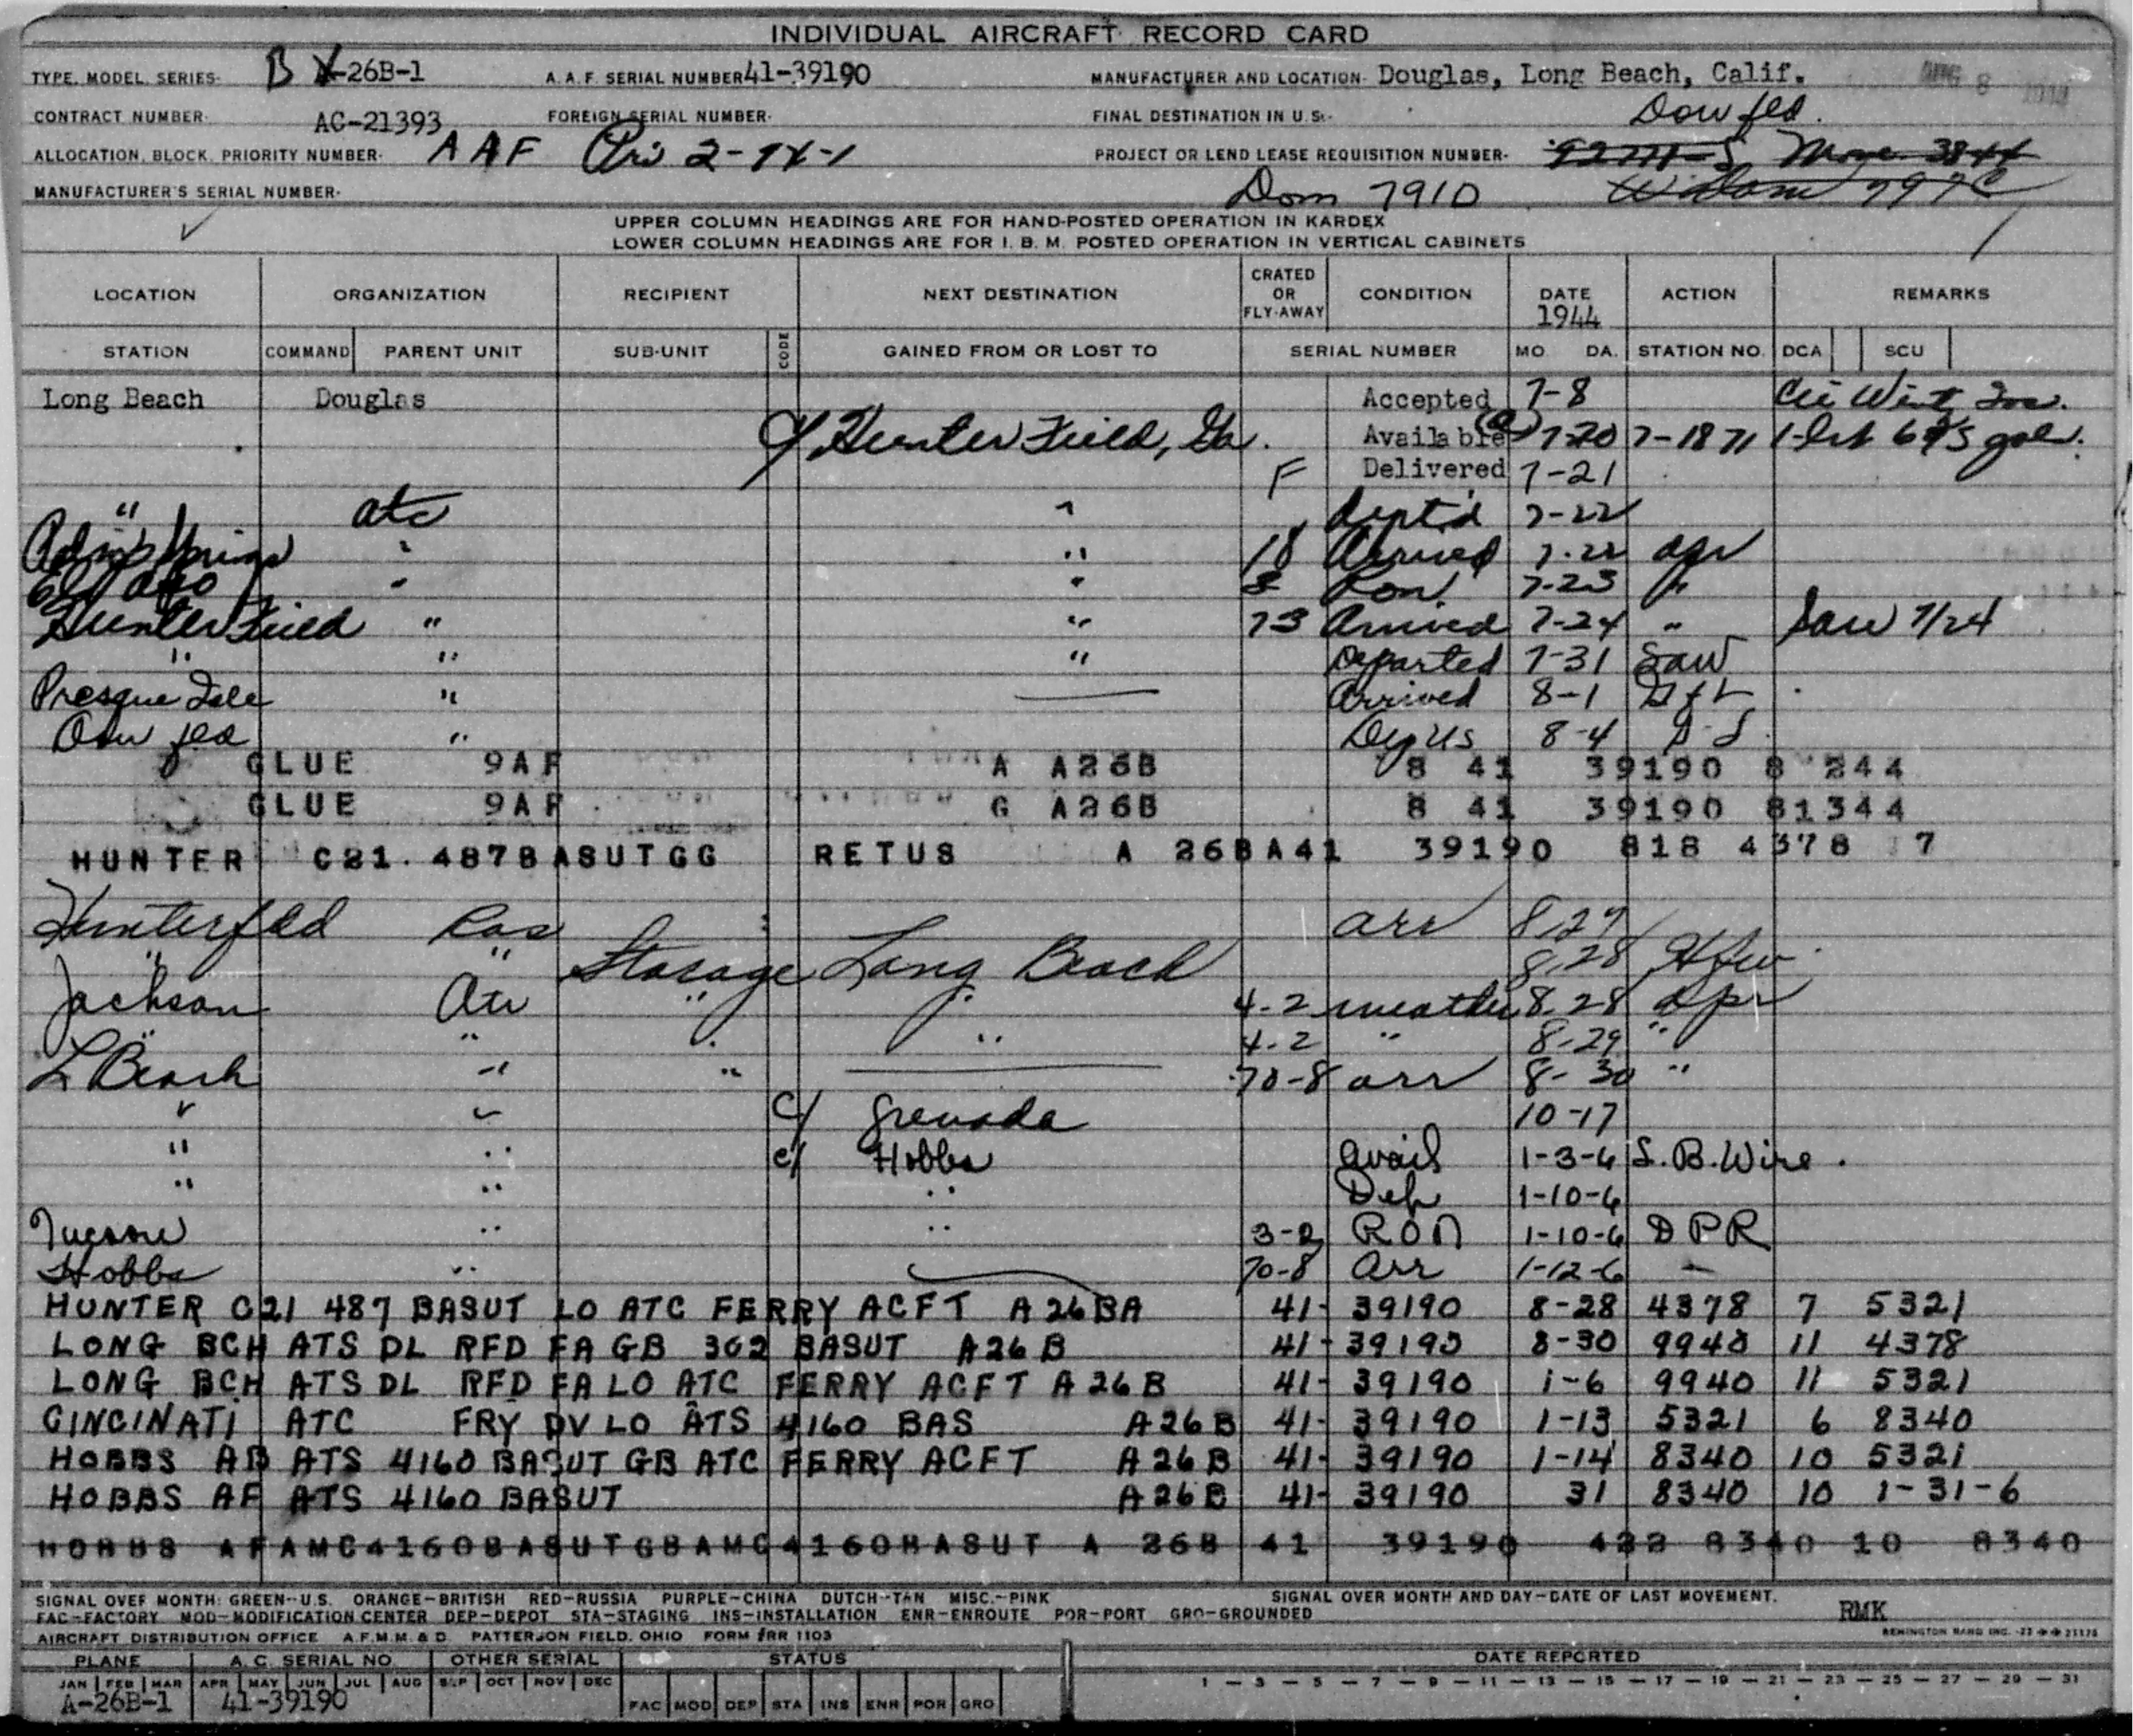 INDIVIDUAL AIRCRAFT RECORD CARD
TYPE, MODEL, SERIES- B X-26B-1 A. A. F. SERIAL NUMBER 41-39190 MANUFACTURER AND LOCATION- Douglas, Long Beach, Calif. AUG 8
CONTRACT NUMBER- AC-21393 FOREIGN SERIAL NUMBER- FINAL DESTINATION IN U. S.- Dow fld.
ALLOCATION, BLOCK, PRIORITY NUMBER- AAF Pri 2-1X-1 PROJECT OR LEND LEASE REQUISITION NUMBER- 92771-S
MANUFACTURER'S SERIAL NUMBER- Dom 7910
UPPER COLUMN HEADINGS ARE FOR HAND-POSTED OPERATION IN KARDEX
LOWER COLUMN HEADINGS ARE FOR I. B. M. POSTED OPERATION IN VERTICAL CABINETS
LOCATION ORGANIZATION RECIPIENT NEXT DESTINATION CRATED OR FLY-AWAY CONDITION DATE 1944 ACTION REMARKS
STATION COMMAND PARENT UNIT SUB-UNIT CODE GAINED FROM OR LOST TO SERIAL NUMBER MO DA. STATION NO. DCA SCU
Long Beach Douglas Accepted 7-8
c/ Hunter Field, Ga. Available 7-20 7-18 71 gal.
F Delivered 7-21
" atc " dept'd 7-22
Palm Springs " " 18 Arrived 7-22 dpr
" " Ron 7-23 "
Hunter Field " " 73 Arrived 7-24 " Saw 7/24
" " " Departed 7-31 Saw
Presque Isle " Arrived 8-1
Dow fld " Dep US 8-4
GLUE 9AF A A26B 8 41 39190 8 244
GLUE 9AF G A26B 8 41 39190 81344
HUNTER C21. 487BASUTGG RETUS A 26BA41 39190 818 4378 7
Hunter fld arr 8.27
" " Storage Long Beach 8.28
Jackson Atc " " 4-2 weather 8.28 dpr
" " " " 4-2 " 8-29 "
L Beach " " 70-8 arr 8-30 "
" " c/ Grenada 10-17
" " c/ Hobbs avail 1-3-6 L.B. Wire.
" " " Dep 1-10-6
Tucson " " 3-2 RON 1-10-6 DPR
Hobbs " 70-8 arr 1-12-6
HUNTER C21 487 BASUT LO ATC FERRY ACFT A26BA 41- 39190 8-28 4378 7 5321
LONG BCH ATS DL RFD FA GB 362 BASUT A26B 41- 39190 8-30 9940 11 4378
LONG BCH ATS DL RFD FA LO ATC FERRY ACFT A26B 41- 39190 1-6 9940 11 5321
CINCINATI ATC FRY DV LO ATS 4160 BAS A26B 41- 39190 1-13 5321 6 8340
HOBBS AB ATS 4160 BASUT GB ATC FERRY ACFT A26B 41- 39190 1-14 8340 10 5321
HOBBS AF ATS 4160 BASUT A26B 41- 39190 31 8340 10 1-31-6
HOBBS AFAMC4160BASUTGBAMC4160BASUT A 26B 41 39190 422 8340 10 8340
SIGNAL OVER MONTH: GREEN--U.S. ORANGE--BRITISH RED--RUSSIA PURPLE--CHINA DUTCH--TAN MISC.--PINK SIGNAL OVER MONTH AND DAY--DATE OF LAST MOVEMENT.
FAC--FACTORY MOD--MODIFICATION CENTER DEP--DEPOT STA--STAGING INS--INSTALLATION ENR--ENROUTE POR--PORT GRO--GROUNDED RMK
AIRCRAFT DISTRIBUTION OFFICE A.F.M.M. & D. PATTERSON FIELD, OHIO FORM #RR 1103 REMINGTON RAND INC.
PLANE A. C. SERIAL NO. OTHER SERIAL STATUS DATE REPORTED
JAN FEB MAR APR MAY JUN JUL AUG SEP OCT NOV DEC 1 — 3 — 5 — 7 — 9 — 11 — 13 — 15 — 17 — 19 — 21 — 23 — 25 — 27 — 29 — 31
A-26B-1 41-39190 FAC MOD DEP STA INS ENR POR GRO